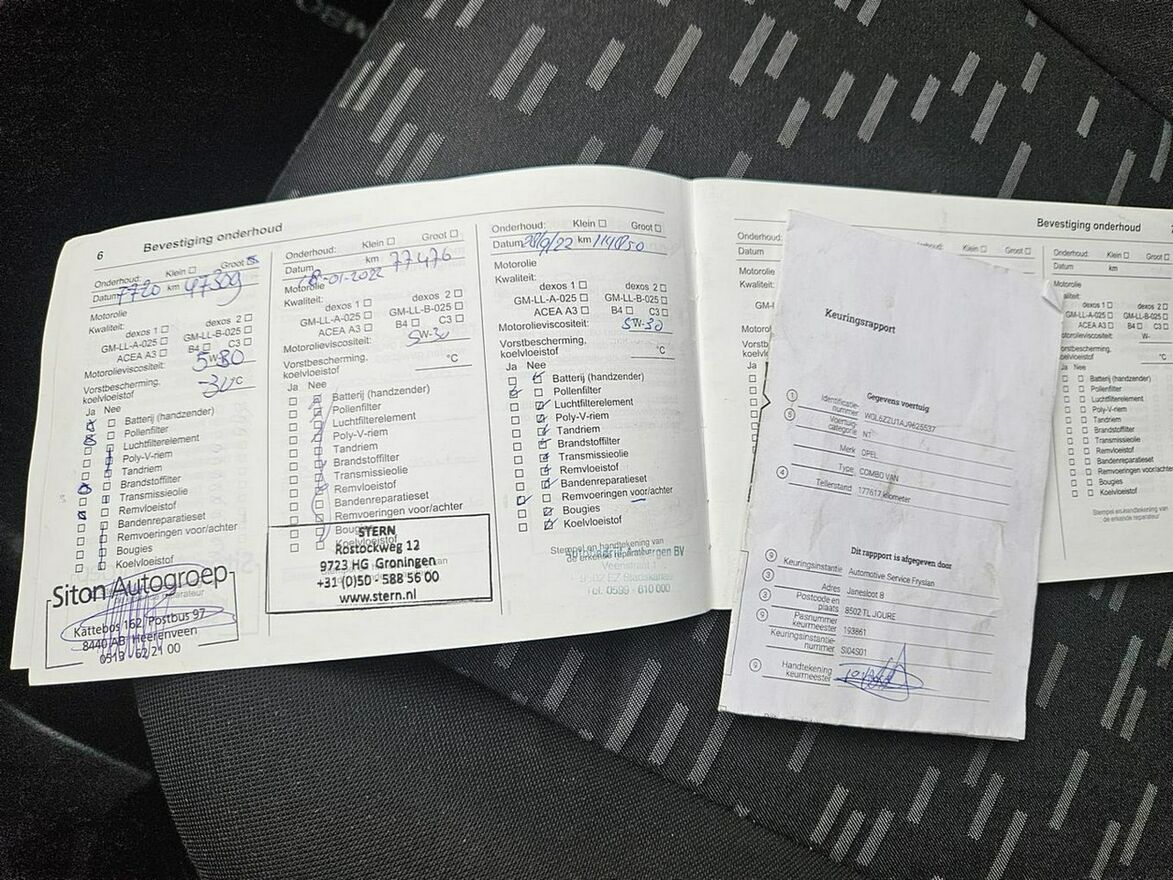 6 Bevestiging onderhoud
Onderhoud: Klein Groot
Datum 7720 km 47309
Motorolie
Kwaliteit:
dexos 1 dexos 2
GM-LL-A-025 GM-LL-B-025
ACEA A3 B4 C3
Motorolieviscositeit: 5W-30
Vorstbescherming,
koelvloeistof °C
Ja Nee
Batterij (handzender)
Pollenfilter
Luchtfilterelement
Poly-V-riem
Tandriem
Brandstoffilter
Transmissieolie
Remvloeistof
Bandenreparatieset
Remvoeringen voor/achter
Bougies
Koelvloeistof
Siton Autogroep
Kattebos 162, Postbus 97
8440 AB Heerenveen
0513 - 62 21 00
Onderhoud: Klein Groot
Datum -01-2022 km 77476
Motorolie
Kwaliteit:
dexos 1 dexos 2
GM-LL-A-025 GM-LL-B-025
ACEA A3 B4 C3
Motorolieviscositeit: 5W-30
Vorstbescherming,
koelvloeistof °C
Ja Nee
Batterij (handzender)
Pollenfilter
Luchtfilterelement
Poly-V-riem
Tandriem
Brandstoffilter
Transmissieolie
Remvloeistof
Bandenreparatieset
Remvoeringen voor/achter
Bougies
Koelvloeistof
STERN
Rostockweg 12
9723 HG Groningen
+31 (0)50 - 588 56 00
www.stern.nl
Onderhoud: Klein Groot
Datum 28/9/22 km 114850
Motorolie
Kwaliteit:
dexos 1 dexos 2
GM-LL-A-025 GM-LL-B-025
ACEA A3 B4 C3
Motorolieviscositeit: 5W-30
Vorstbescherming,
koelvloeistof °C
Ja Nee
Batterij (handzender)
Pollenfilter
Luchtfilterelement
Poly-V-riem
Tandriem
Brandstoffilter
Transmissieolie
Remvloeistof
Bandenreparatieset
Remvoeringen voor/achter
Bougies
Koelvloeistof
Stempel en handtekening van
de erkende reparateur
Veenstraat 1
9502 EZ Stadskanaal
Tel. 0599 - 610 000
Bevestiging onderhoud
Keuringsrapport
Gegevens voertuig
1 Identificatie-
nummer W0L6ZZU1AJ9625537
8 Voertuig-
categorie N1
Merk OPEL
Type COMBO VAN
4 Tellerstand 177617 kilometer
Dit rappport is afgegeven door
9 Keuringsinstantie Automotive Service Fryslan
3 Adres Janesloot 8
3 Postcode en
plaats 8502 TL JOURE
9 Pasnummer
keurmeester 193861
Keuringsinstantie-
nummer SI04S01
9 Handtekening
keurmeester
Klein Groot
Datum km
Motorolie
dexos 1 dexos 2
GM-LL-A-025 GM-LL-B-025
ACEA A3 B4 C3
Motorolieviscositeit: W-
koelvloeistof °C
Ja Nee
Batterij (handzender)
Pollenfilter
Luchtfilterelement
Poly-V-riem
Tandriem
Brandstoffilter
Transmissieolie
Remvloeistof
Bandenreparatieset
Remvoeringen voor/achter
Bougies
Koelvloeistof
Stempel en handtekening van
de erkende reparateur